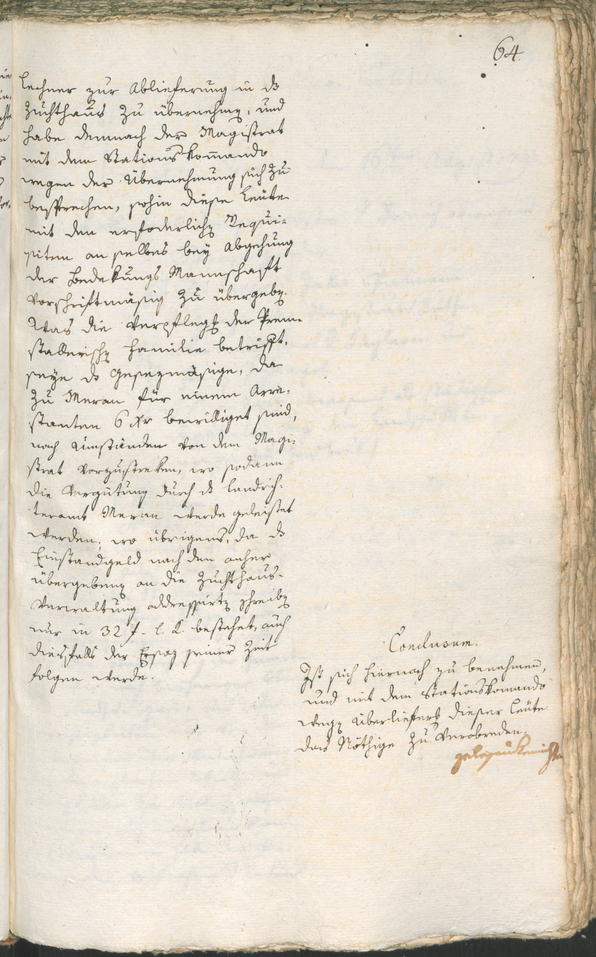 64.
Lechner zur Ablieferung in ds
Zuchthaus zu übernehmen, und
habe demnach der Magistrat
mit dem Stations Kommando
wegen der Übernehmung sich zu
besprechen, sohin diese Leute
mit den erforderlichen Requi-
siten an selbes bey Abgehung
der Bedekungs Mannschaft
vorschriftmäsig zu übergeben.
Was die Verpflegung der
stallerischen Familie betrifft,
seye ds gesezmäsige, da
zu Meran für einem Arre-
stanten 6 xr bewilliget sind,
nach Umständen von dem Magi-
strat vorzustreken, wo sodann
die Vergütung durch ds Landrich-
teramt Meran werde geleistet
werden, wo übrigens, da ds
Einstandgeld nach dem anher
übergebenen an die Zuchthaus-
Verwaltung addressirten Schreiben
nur in 32 f. bestehet, auch
diesfalls der Ersaz seiner Zeit
folgen werde.
Conclusum.
Ist sich hiernach zu benehmen,
und mit dem Stationskomando
wegen Überlieferung dieser Leute
das Nöthige zu verabreden.